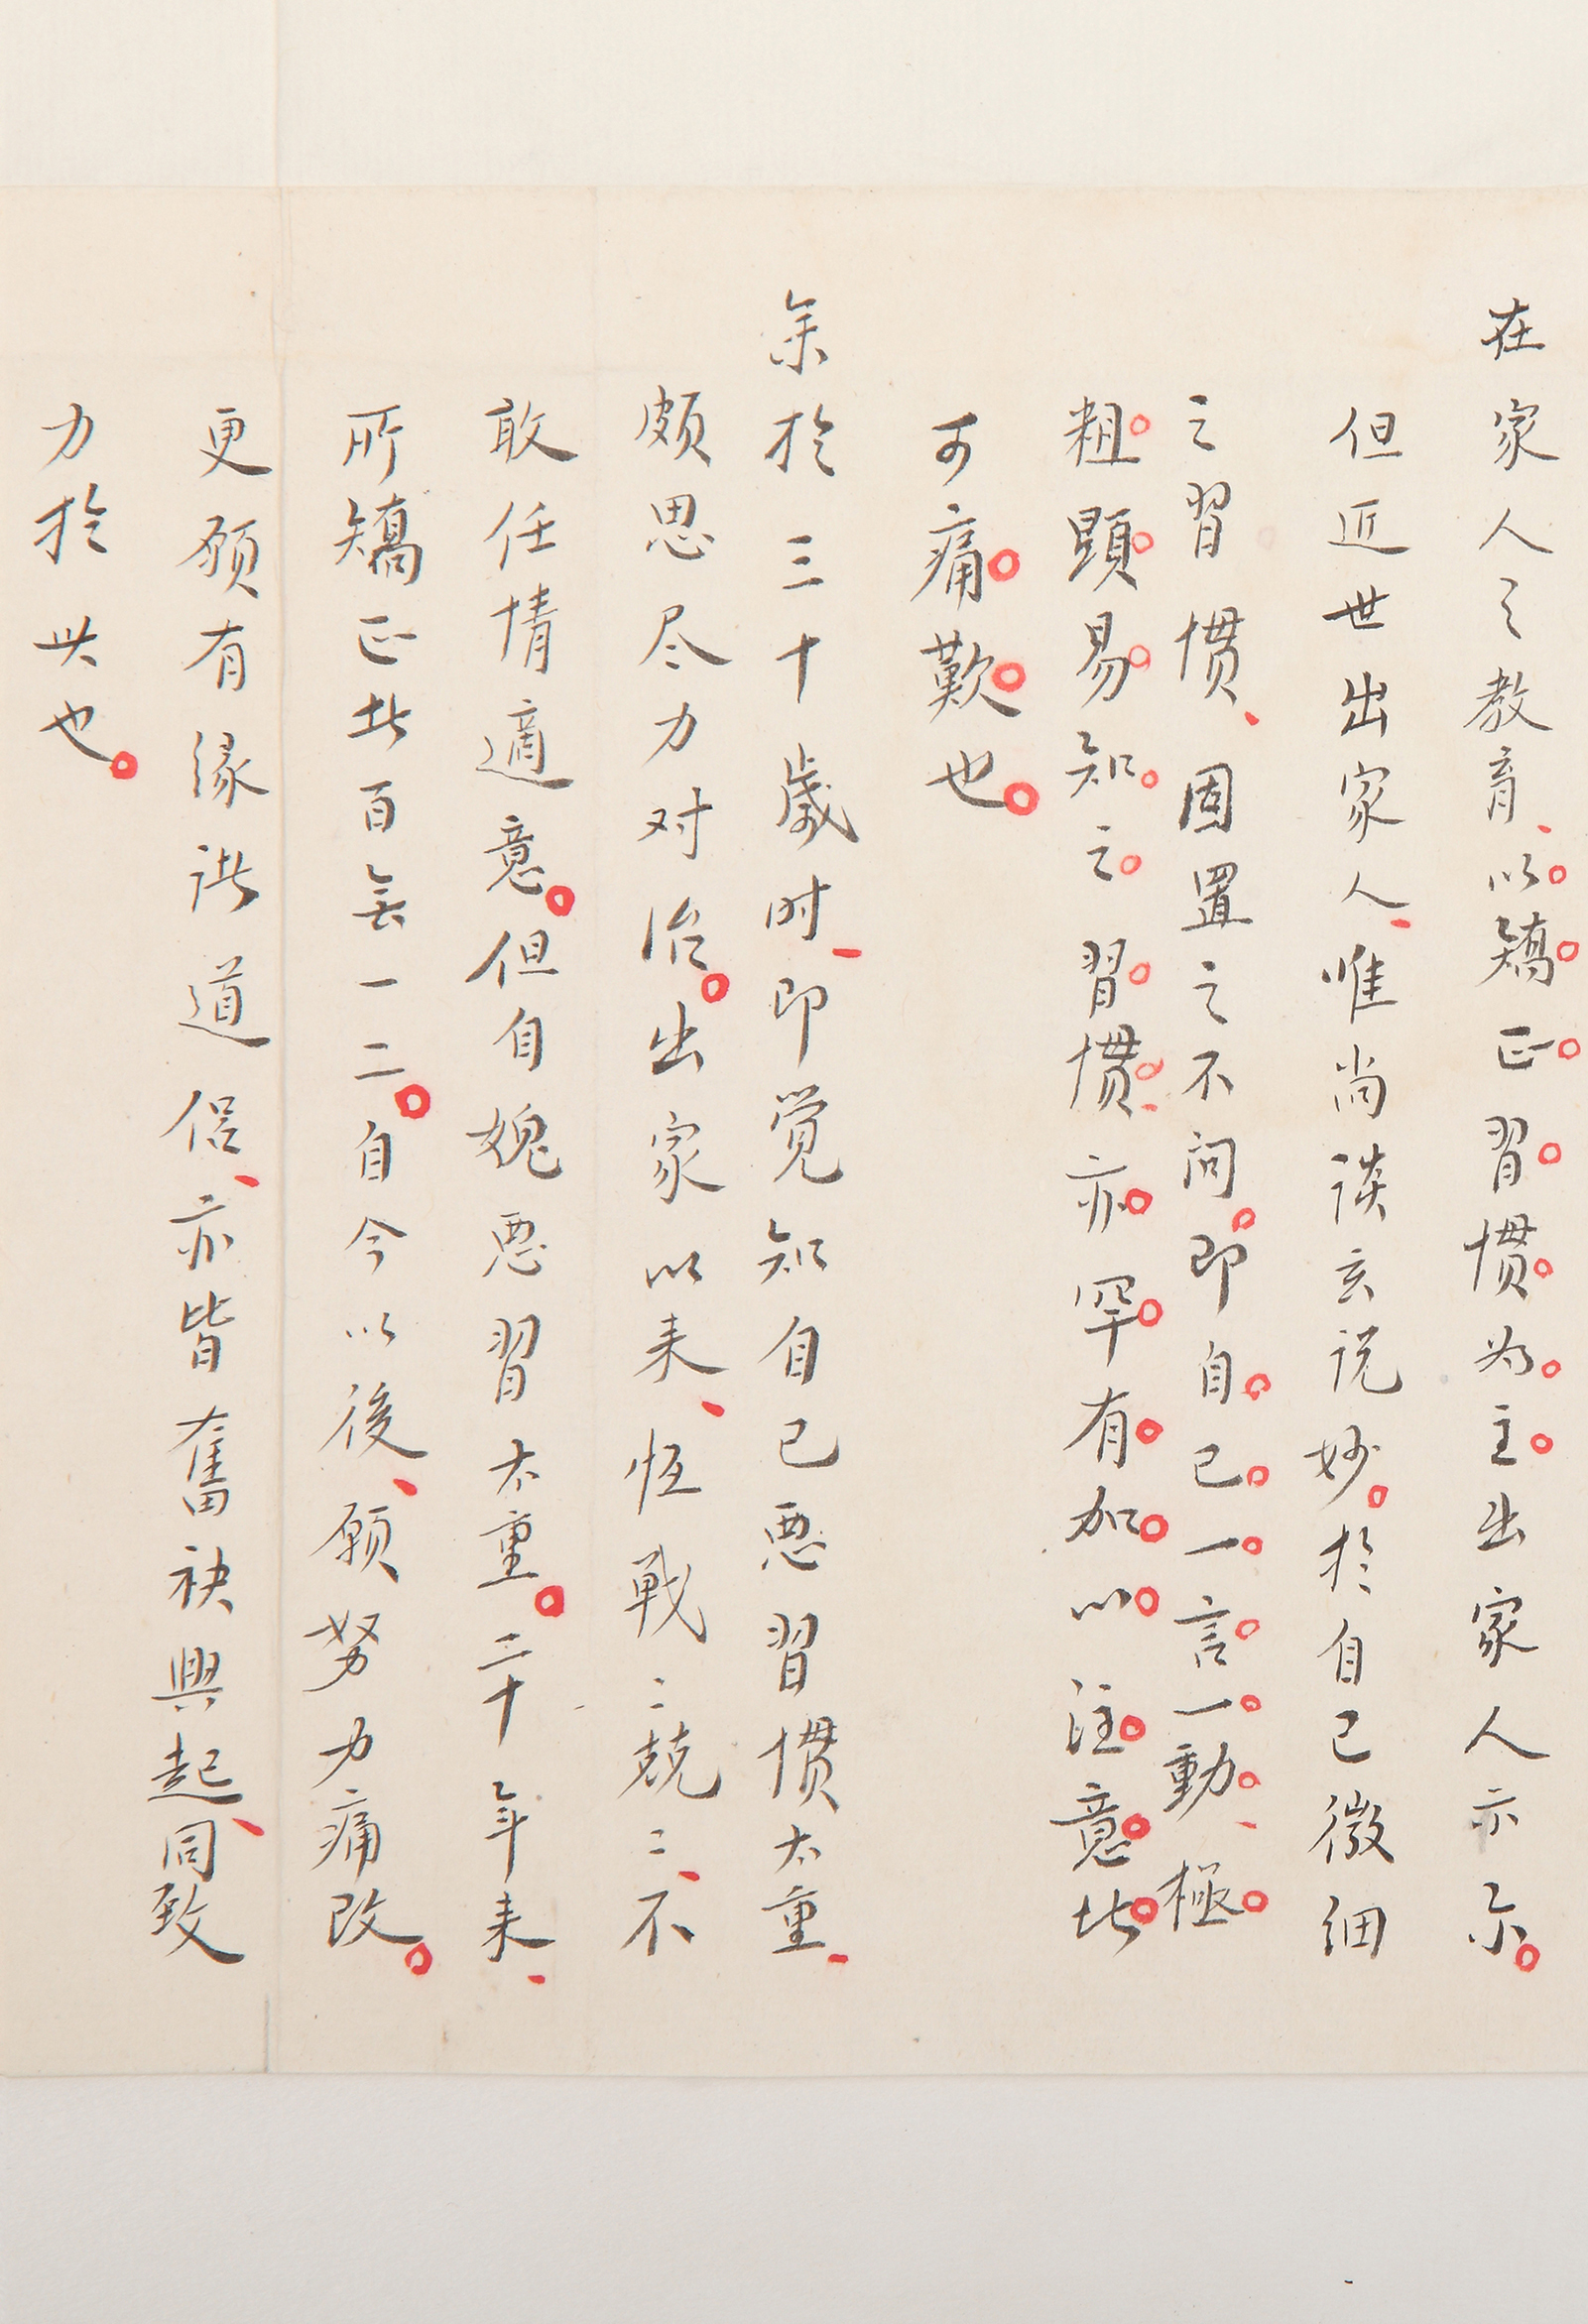 在家人之教育、以矯正習慣为主出家人亦尔。
但近世出家人、唯尚談玄说妙。於自己微细
之習慣、固置之不问。即自己一言一動、極
粗顯易知之習慣、亦罕有加以注意。此
可痛歎也。
余於三十歲时、即觉知自己惡習慣太重、
頗思尽力对治。出家以来、恆戰〻兢〻、不
敢任情適意。但自媿惡習太重。二十年来、
所矯正者百无一二。自今以後、願努力痛改。
更願有缘诸道侣、亦皆奮袂興起、同致
力於此也。